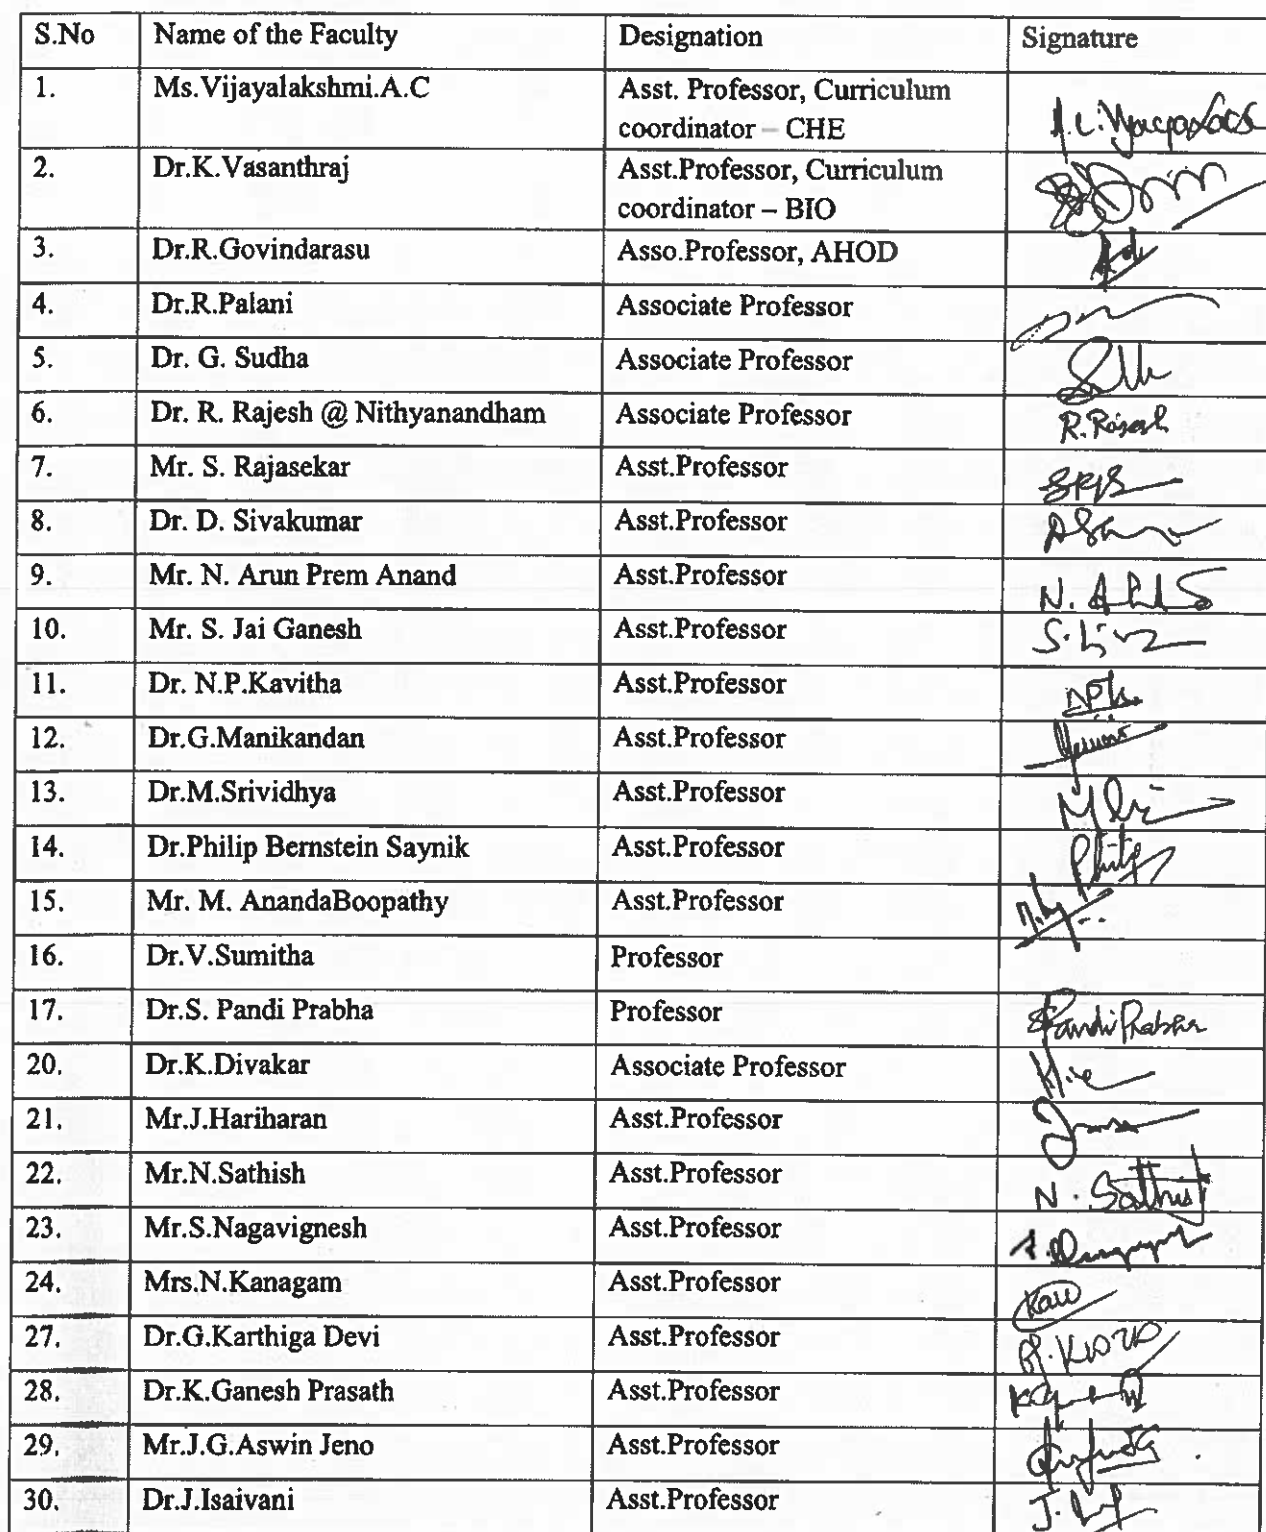 S.No Name of the Faculty Designation Signature
1. Ms.Vijayalakshmi.A.C Asst. Professor, Curriculum
coordinator – CHE
2. Dr.K.Vasanthraj Asst.Professor, Curriculum
coordinator – BIO
3. Dr.R.Govindarasu Asso.Professor, AHOD
4. Dr.R.Palani Associate Professor
5. Dr. G. Sudha Associate Professor
6. Dr. R. Rajesh @ Nithyanandham Associate Professor R. Rajesh
7. Mr. S. Rajasekar Asst.Professor
8. Dr. D. Sivakumar Asst.Professor
9. Mr. N. Arun Prem Anand Asst.Professor
10. Mr. S. Jai Ganesh Asst.Professor
11. Dr. N.P.Kavitha Asst.Professor
12. Dr.G.Manikandan Asst.Professor
13. Dr.M.Srividhya Asst.Professor
14. Dr.Philip Bernstein Saynik Asst.Professor Philip
15. Mr. M. AnandaBoopathy Asst.Professor
16. Dr.V.Sumitha Professor
17. Dr.S. Pandi Prabha Professor S PandiPrabha
20. Dr.K.Divakar Associate Professor
21. Mr.J.Hariharan Asst.Professor
22. Mr.N.Sathish Asst.Professor N. Sathish
23. Mr.S.Nagavignesh Asst.Professor
24. Mrs.N.Kanagam Asst.Professor
27. Dr.G.Karthiga Devi Asst.Professor
28. Dr.K.Ganesh Prasath Asst.Professor
29. Mr.J.G.Aswin Jeno Asst.Professor
30. Dr.J.Isaivani Asst.Professor